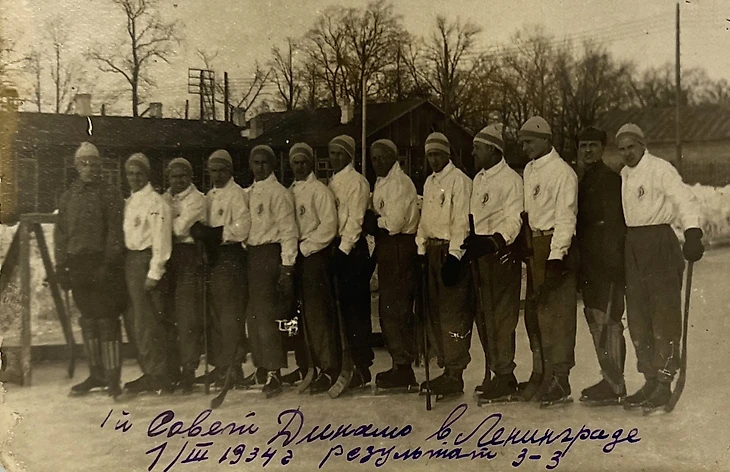 1й Совет Динамо в Ленинграде
1/III 1934 г результат 3-3